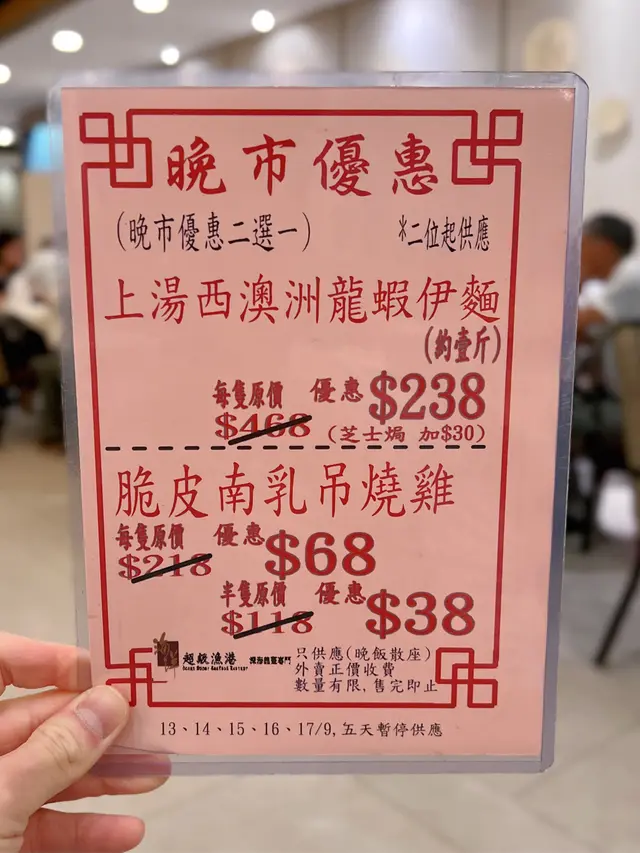 晚市優惠
(晚市優惠二選一) *二位起供應
上湯西澳洲龍蝦伊麵
(約壹斤)
每隻原價 優惠 $238
$468 (芝士焗 加$30)
脆皮南乳吊燒雞
每隻原價 優惠 $68
$218
半隻原價 優惠 $38
$118
只供應(晚飯散座)
外賣正價收費
數量有限,售完即止
13、14、15、16、17/9,五天暫停供應